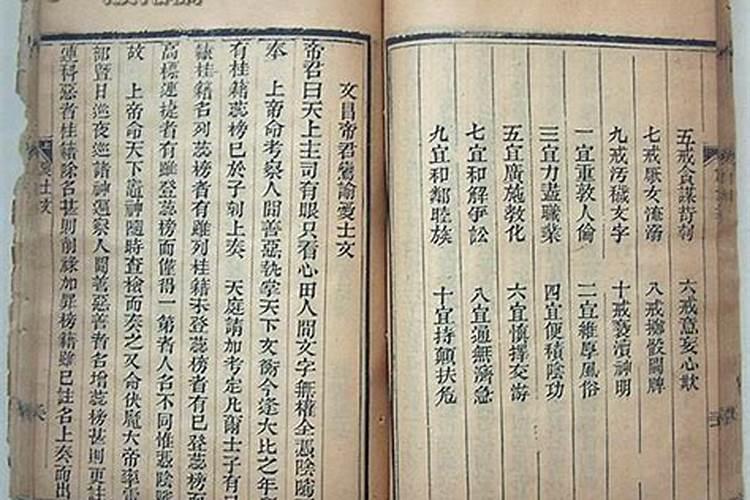 五戒貪謀苛刻 六戒意妄心欺
七戒厭女淹溺 八戒擲骰鬬牌
九戒污穢文字 十戒褻瀆神明
一宜重敦人倫 二宜維厚風俗
三宜力盡職業 四宜便積陰功
五宜廣施教化 六宜慎擇交游
七宜和解爭訟 八宜通無濟急
九宜和鄰睦族 十宜持顛扶危
文昌帝君鸞諭愛士文
帝君曰天上主司有眼只看心田人間文字無權全憑陰隲
奉 上帝命考察人間善惡執掌天下文衡今逢大比之年
有桂籍蕊榜已於子刻上奏 天庭請加考定凡爾士子有
桂籍名列蕊榜者有雖列桂籍未登蕊榜者有已登蕊榜
高標連捷者有雖登蕊榜而僅得一第者人名不同惟憑陰隲
故 上帝命天下神隨時查檢而奏之又命伏魔大帝率
部暨日巡夜巡諸神遍察人間善惡善者名增蕊榜甚則更註
連科惡者桂籍除名甚則削祿加罪榜籍雖已註名上奏而出
愛士文